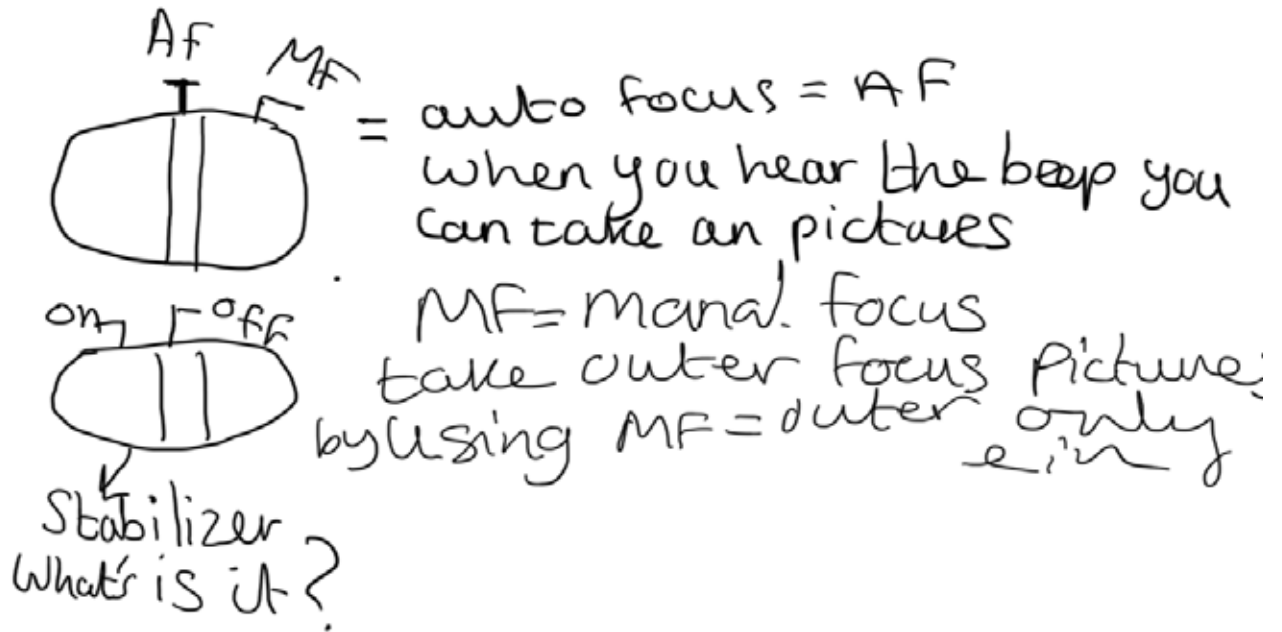 AF
MF
= auto focus = AF
when you hear the beep you
can take an pictures
on off
MF = mana. focus
take outer focus pictures
by using MF = outer only
Stabilizer
What's is it?